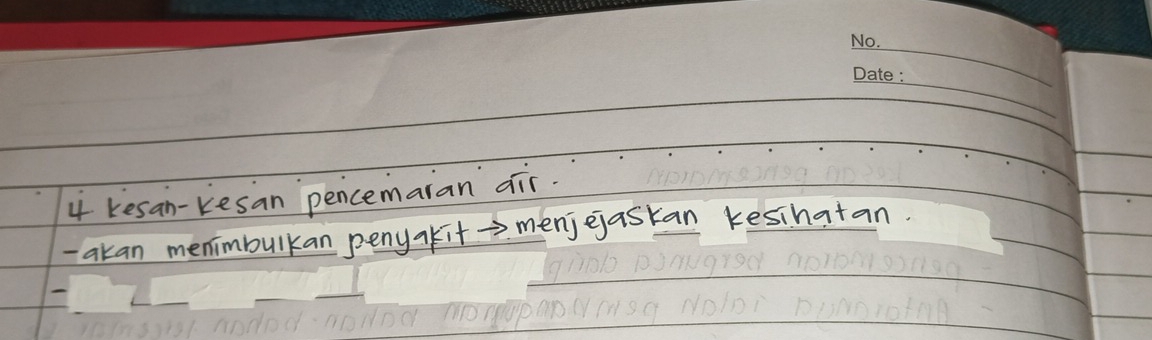 No.
Date :
4 kesan-kesan pencemaran air.
- akan menimbulkan penyakit → menjejaskan kesihatan.
-